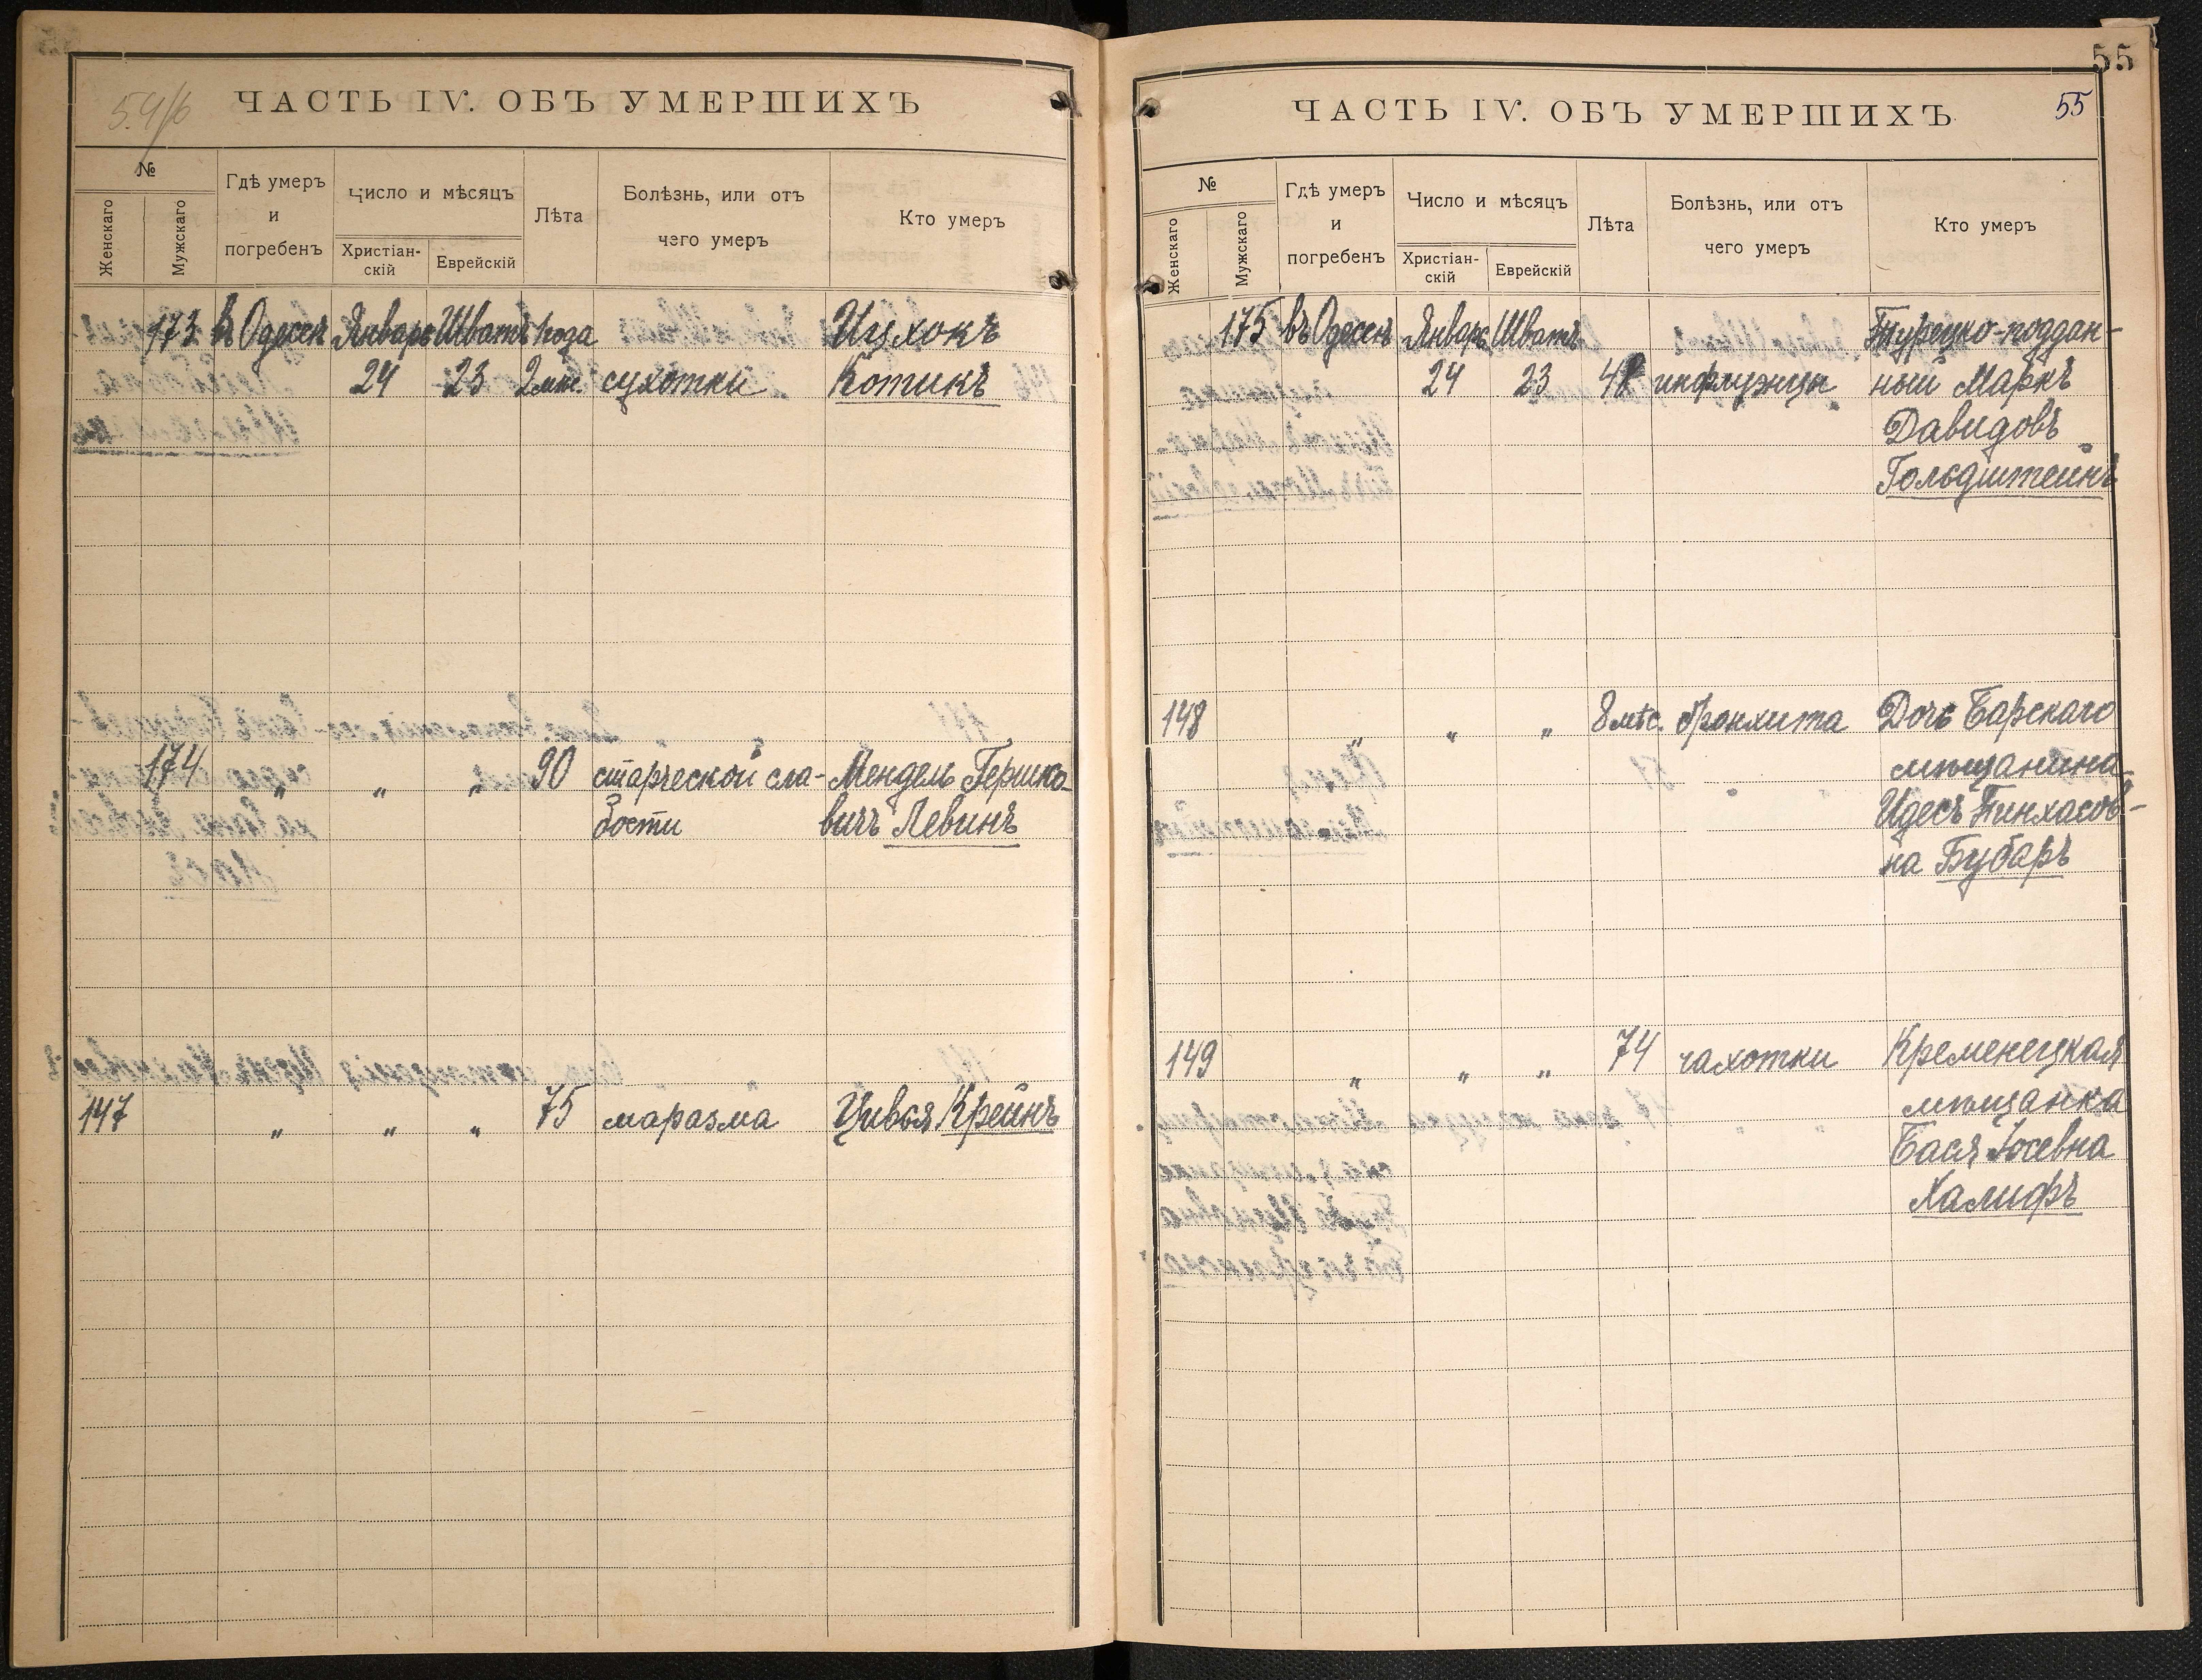 ЧАСТЬ IV. ОБЪ УМЕРШИХЪ
№
Женскаго
Мужскаго
Гдѣ умеръ
и
погребенъ
Число и мѣсяцъ
Христіан-
скій
Еврейскій
Лѣта
Болѣзнь, или отъ
чего умеръ
Кто умеръ
173 въ Одессѣ Январь Шватъ 1 года Ицхокъ
24 23 2 мѣс. сухотки Котикъ
174 " " " 90 старческой сла- Мендель Гершко-
бости вичъ Левинъ
147 " " " 75 маразма Цивья Крейнъ
55
ЧАСТЬ IV. ОБЪ УМЕРШИХЪ
55
№
Женскаго
Мужскаго
Гдѣ умеръ
и
погребенъ
Число и мѣсяцъ
Христіан-
скій
Еврейскій
Лѣта
Болѣзнь, или отъ
чего умеръ
Кто умеръ
175 въ Одессѣ Январь Шватъ Турецко-поддан-
24 23 инфлуэнцы ный Маркъ
Давидовъ
Гольдштейнъ
148 " " " 8 мѣс. бронхита Дочь Барскаго
мѣщанина
Идесъ Пинхасов-
на Бубаръ
149 " " " 74 чахотки Кременецкая
мѣщанка
Бася Іосевна
Халифъ